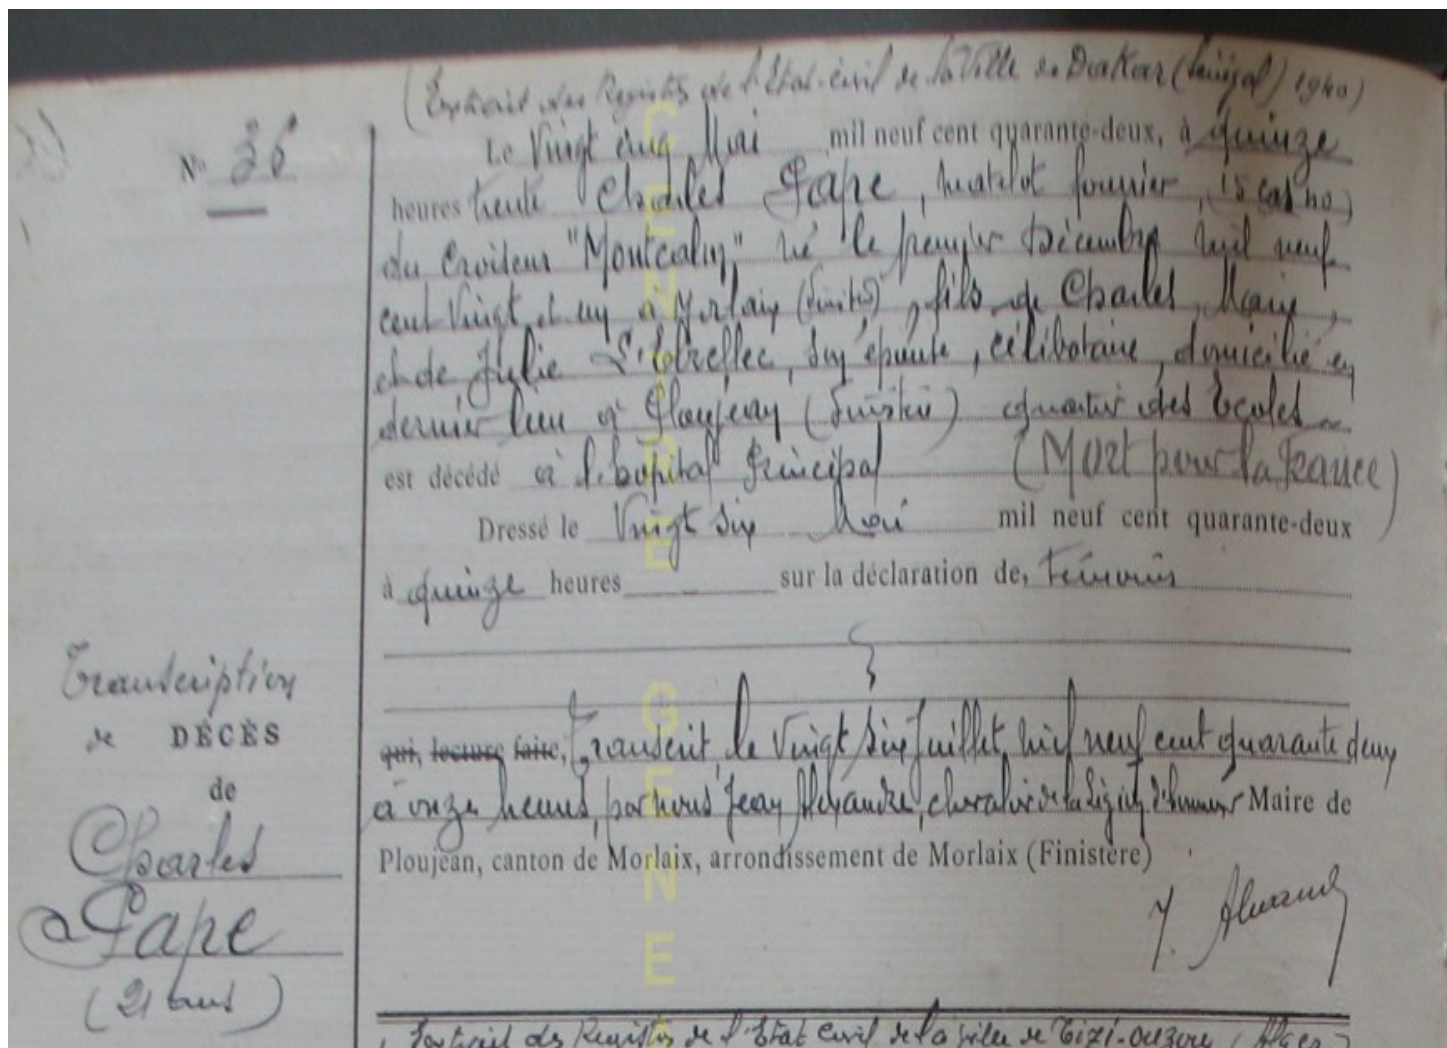 (Extrait des Registres de l'Etat-civil de la Ville de Dakar (Sénégal) 1940)
N° 26
Le Vingt cinq Mai mil neuf cent quarante-deux, à quinze
heures trente Charles Pape, matelot fourrier,
du Croiseur "Montcalm" né le premier Décembre mil neuf
cent Vingt et un à Morlaix (Finist), fils de Charles, Marie,
et de Julie son épouse, célibataire, domicilié en
dernier lieu à Ploujean (Finistère) quartier des Ecoles
est décédé à l'hôpital Principal (Mort pour la France)
Dressé le Vingt six Mai mil neuf cent quarante-deux
à quinze heures sur la déclaration de, témoins
Transcription
de DÉCÈS
de
Charles
Pape
(21 ans)
qui, lecture faite, Transcrit le Vingt six Juillet, mil neuf cent quarante deux
à onze heures, par nous Jean Alexandre, chevalier de la Légion d'honneur Maire de
Ploujean, canton de Morlaix, arrondissement de Morlaix (Finistère)
J. Alexandre
Extrait des Registres de l'Etat Civil de la ville de Tizi-Ouzou (Alger)
GENE